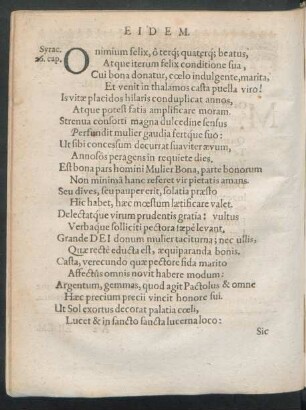 EIDEM.
Syrac.
26. cap.
O nimium felix, ô terq́; quaterq́; beatus,
Atque iterum felix conditione sua,
Cui bona donatur, cœlo indulgente, marita,
Et venit in thalamos casta puella viro!
Is vitæ placidos hilaris conduplicat annos,
Atque potest fatis amplificare moram.
Strenua consorti magna dulcedine sensus
Perfundit mulier gaudia fertque suo:
Ut sibi concessum decurrat suaviter ævum,
Annosos peragens in requiete dies.
Est bona pars homini Mulier Bona, parte bonorum
Non minimâ hanc referet vir pietatis amans.
Seu dives, seu pauper erit, solatia præsto
Hic habet, hæc mœstum lætificare valet.
Delectatque virum prudentis gratia: vultus
Verbaque solliciti pectora sæpe levant.
Grande DEI donum mulier taciturna; nec ullis,
Quæ rectè educta est, æquiparanda bonis.
Casta, verecundo quæ pectore fida marito
Affectus omnis novit habere modum:
Argentum, gemmas, quod agit Pactolus & omne
Hæc precium precii vincit honore sui.
Ut Sol exortus decorat palatia cœli,
Lucet & in sancto sancta lucerna loco:
Sic